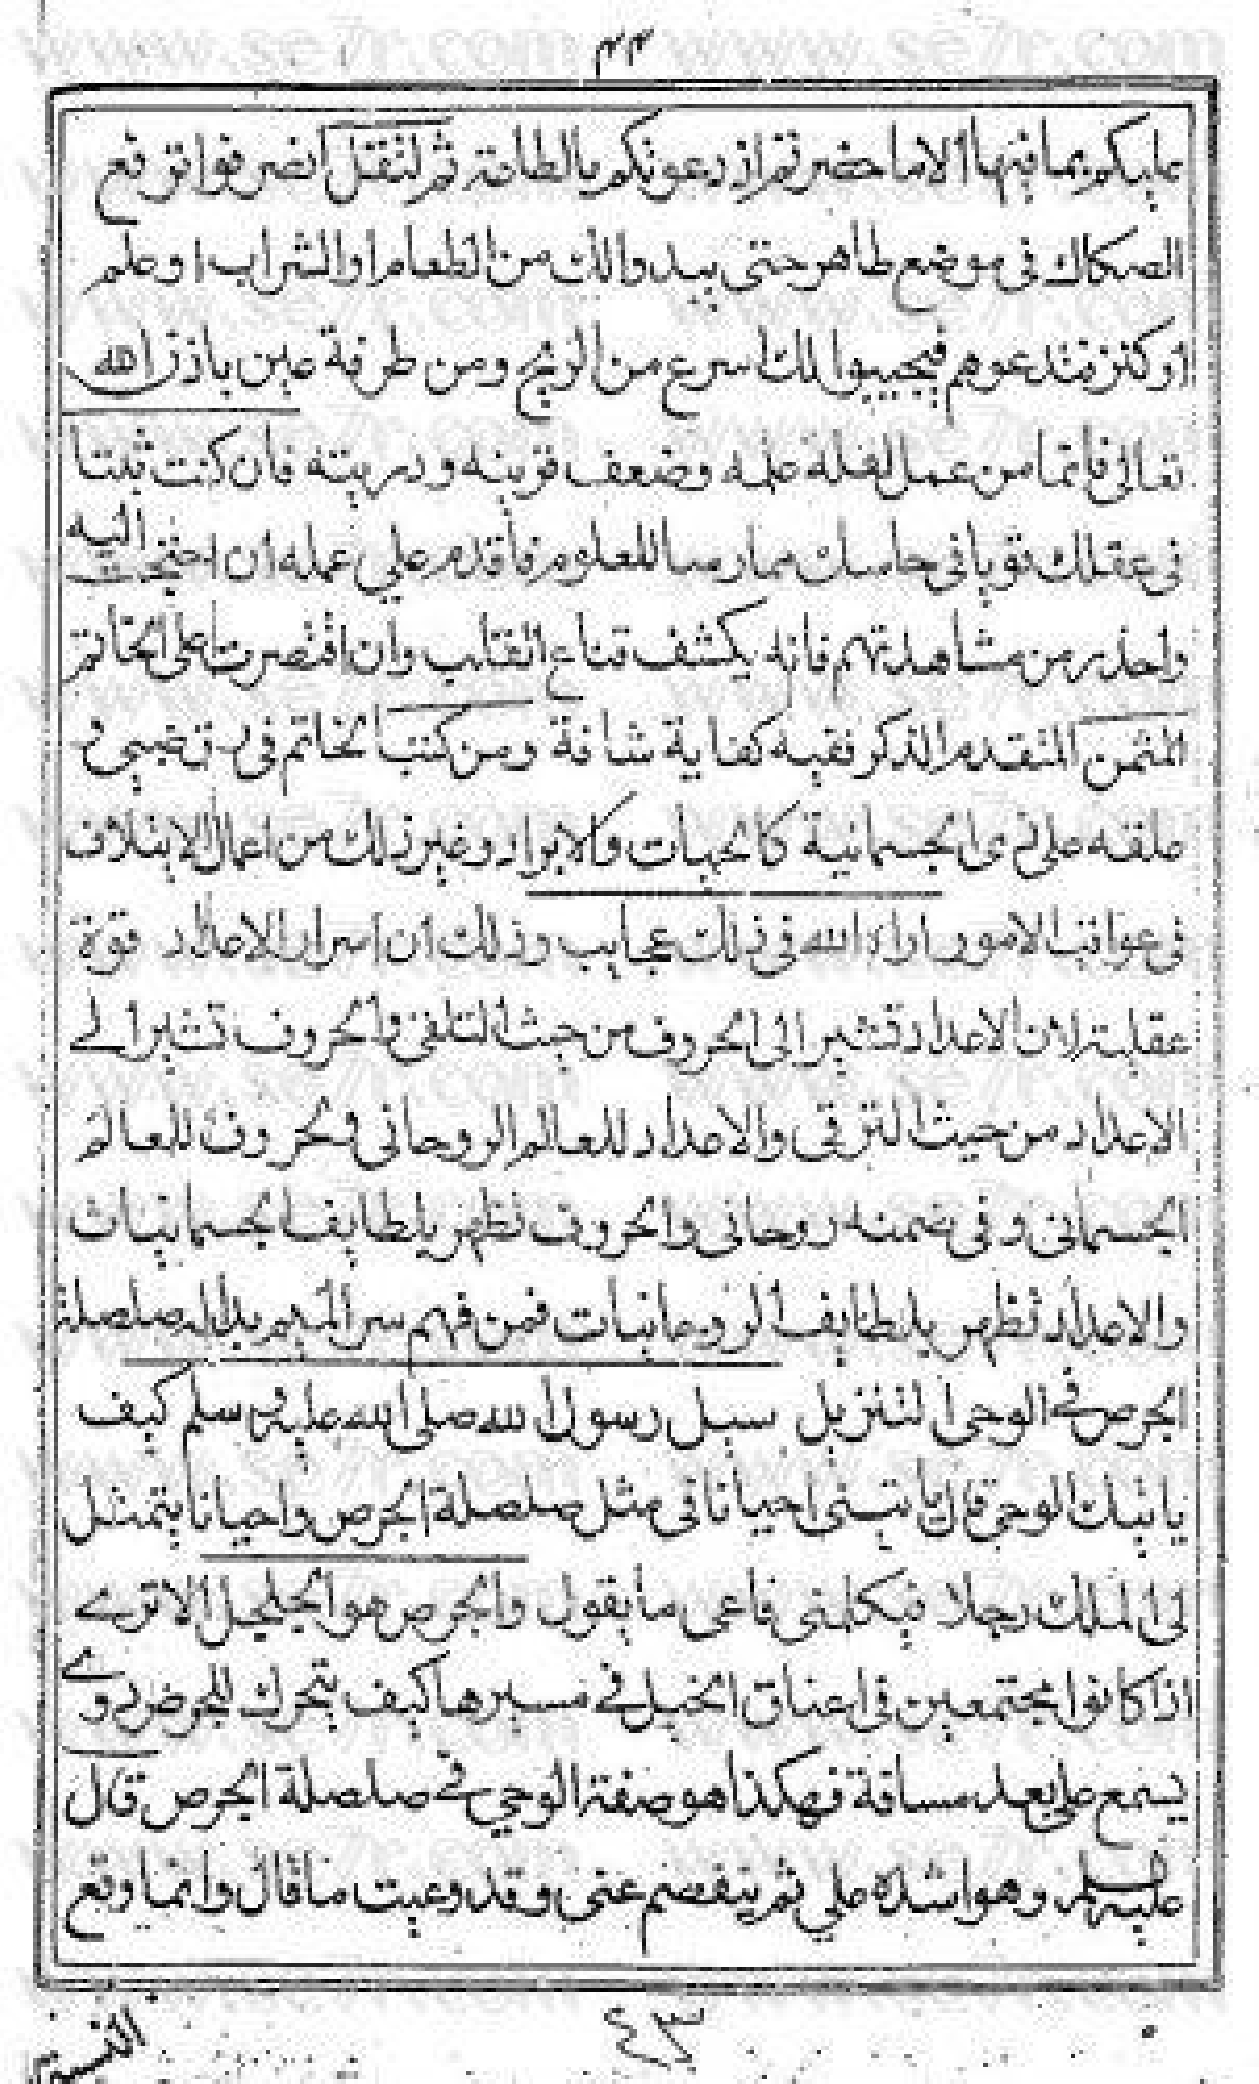 ٤٣
عليكم بما فيها الا ما حضرتم اذ دعونكم بالطاعة ثم لتقل انصرفوا توقع
الصكاك فى موضع طاهر حتى يبدوا لك من الطعام او الشراب او علم
او كنز تدعوهم فيجيبوا لك اسرع من الريح ومن طرفة عين باذن الله
تعالى فانما من عمل لقلة علمه وضعف قريته ودربته فان كنت ثبتا
فى عقلك قويا فى جاسك ممارسا للعلوم فأقدم على عمله ان احتجت اليه
واحذر من مشاهدتهم فانه يكشف قناع القلب وان اقتصرت على الخاتم
المثمن المتقدم الذكر ففيه كفاية شافة ومن كتب الخاتم فى
علقه على ذى الجسمانية كالجهات والابرار وغير ذلك من اعمال الايتلاف
فى عواقب الامور اراه الله فى ذلك عجايب وذلك ان اسرار الاعداد قوة
عقلية لان الاعداد تشير الى الحروف من حيث التلقى والحروف تشير الى
الاعداد من حيث الترقى والاعداد للعالم الروحانى والحروف للعالم
الجسمانى وفى ضمنه روحانى والحروف تظهر بلطايف الجسمانيات
والاعداد تظهر بلطايف الروحانيات فمن فهم سر الميم بدالله صلصلة
الجرص فى الوحى التنزيل سيل رسول الله صلى الله عليه وسلم كيف
ياتيك الوحى قال ياتينى احيانا فى مثل صلصلة الجرص واحيانا يتمثل
لى الملك رجلا فيكلمنى فاعى ما يقول والجرص هو الجلجل الا ترى
اذا كانوا مجتمعين فى اعناق الخيل فى مسيرها كيف يتحرك للجرص دوى
يسمع على بعد مسافة فهكذا هو صفة الوحى فى صلصلة الجرص قال
عليه السلم وهو اشده على ثم ينفصم عنى وقد وعيت ما قال وانما وقع
٤٣